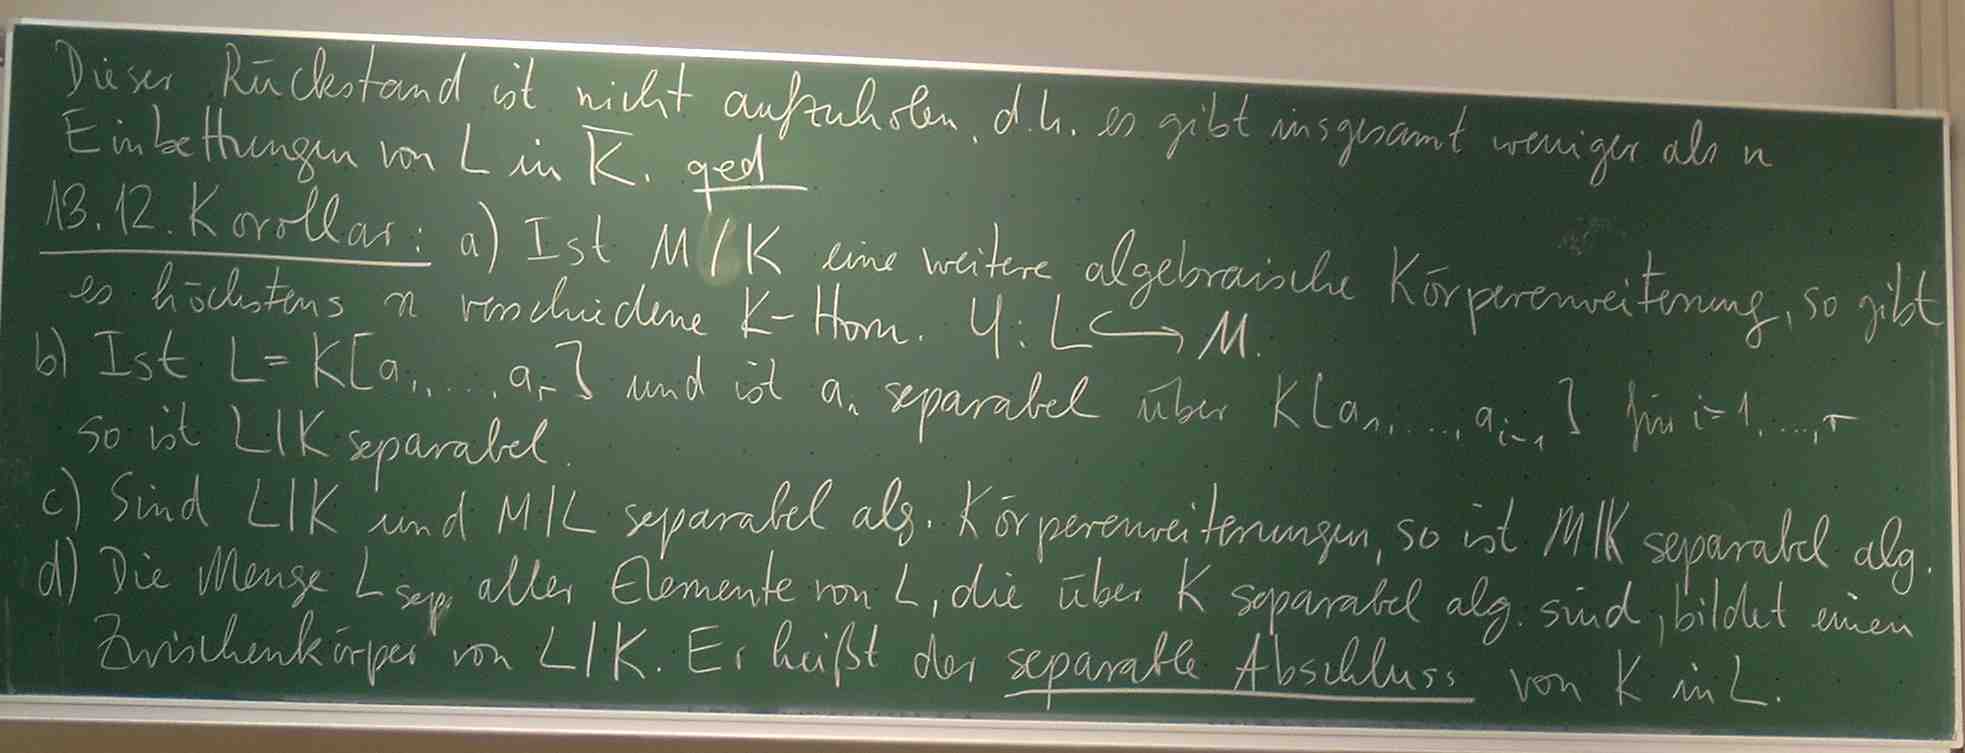 Dieser Rückstand ist nicht aufzuholen, d.h. es gibt insgesamt weniger als n
Einbettungen von L in K̅. qed
13.12. Korollar: a) Ist M/K eine weitere algebraische Körpererweiterung, so gibt
es höchstens n verschiedene K-Hom. φ: L ↪ M.
b) Ist L = K[a₁, ..., aᵣ] und ist aᵢ separabel über K[a₁, ..., aᵢ₋₁] für i=1, ..., r
so ist L|K separabel.
c) Sind L|K und M|L separabel alg. Körpererweiterungen, so ist M|K separabel alg.
d) Die Menge L_sep aller Elemente von L, die über K separabel alg. sind, bildet einen
Zwischenkörper von L/K. Er heißt der separable Abschluss von K in L.